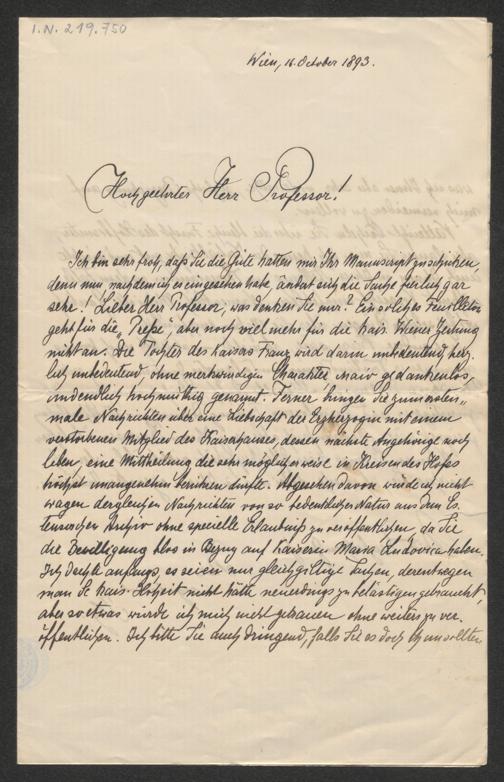 I.N. 219.750
Wien, 16. October 1893.
Hochgeehrter Herr Professor!
Ich bin sehr froh, daß Sie die Güte hatten mir Ihr Manuscript zu schicken,
denn nun nachdem ich es eingesehen habe, ändert sich die Sache freilich gar
sehr! Lieber Herr Professor, was denken Sie nur? Ein solches Feuilleton
geht für die „Presse“, aber noch viel mehr für die kais. Wiener Zeitung
nicht an. Die Tochter des Kaisers Franz wird darin unbedeutend, herz-
lich unbedeutend, ohne merkwürdigen Charakter, naiv gedankenlos,
unendlich hochmüthig genannt. Ferner bringen Sie zum ersten-
male Nachrichten über eine Liebschaft der Erzherzogin mit einem
verstorbenen Mitglied des Kaiserhauses, dessen nächste Angehörige noch
leben, eine Mittheilung die sehr möglicherweise in Kreisen des Hofes
höchst unangenehm berühren dürfte. Abgesehen davon würde ich nicht
wagen dergleichen Nachrichten von so bedenklicher Natur aus dem Es-
lenschen Archiv ohne specielle Erlaubniß zu veröffentlichen, da Sie
die Bewilligung blos in Bezug auf Kaiserin Maria Ludovica haben.
Ich dachte anfangs, es seien nur gleichgiltige Sachen, derentwegen
man Se. kais. Hoheit nicht hätte neuerdings zu belästigen gebraucht,
aber so etwas würde ich mich nicht getrauen ohne weiters zu ver-
öffentlichen. Ich bitte Sie auch dringend, falls Sie es doch thun wollten